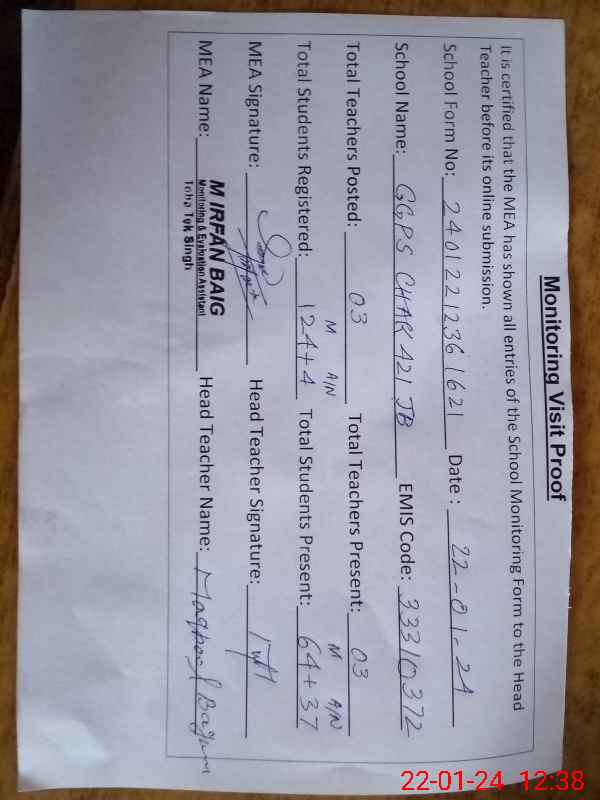 Monitoring Visit Proof
It is certified that the MEA has shown all entries of the School Monitoring Form to the Head
Teacher before its online submission.
School Form No: 24012212361621 Date : 22-01-24
School Name: GGPS CHAK 421 JB EMIS Code: 33310372
Total Teachers Posted: 03 Total Teachers Present: 03
M A/N M A/N
Total Students Registered: 124+4 Total Students Present: 64+37
MEA Signature: Head Teacher Signature:
M IRFAN BAIG
Monitoring & Evaluation Assistant
Toba Tek Singh
MEA Name: Head Teacher Name: Maqbool Bagum
22-01-24 12:38